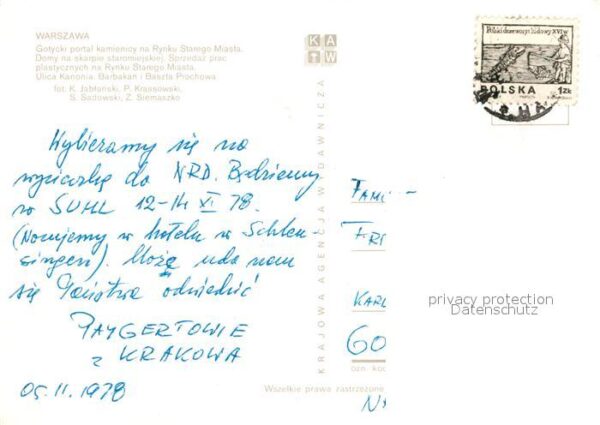 WARSZAWA
Gotycki portal kamienicy na Rynku Starego Miasta.
Domy na skarpie staromiejskiej. Sprzedaż prac
plastycznych na Rynku Starego Miasta.
Ulica Kanonia. Barbakan i Baszta Prochowa
fot. K. Jabłoński, P. Krassowski,
S. Sadowski, Z. Siemaszko
Wybieramy się na
wycieczkę do NRD. Będziemy
w SUHL 12-14 XI 78.
(Nocujemy w hotelu w Schleu-
singen). Może uda nam
się Państwa odwiedzić
PAYGERTOWIE
z KRAKOWA
05.11.1978
KRAJOWA AGENCJA WYDAWNICZA
KAW
Polski drzeworyt ludowy XVI w.
POLSKA 1zł
FAMI
FRI
KARL
60
ozn. kod
Wszelkie prawa zastrzeżone
privacy protection
Datenschutz